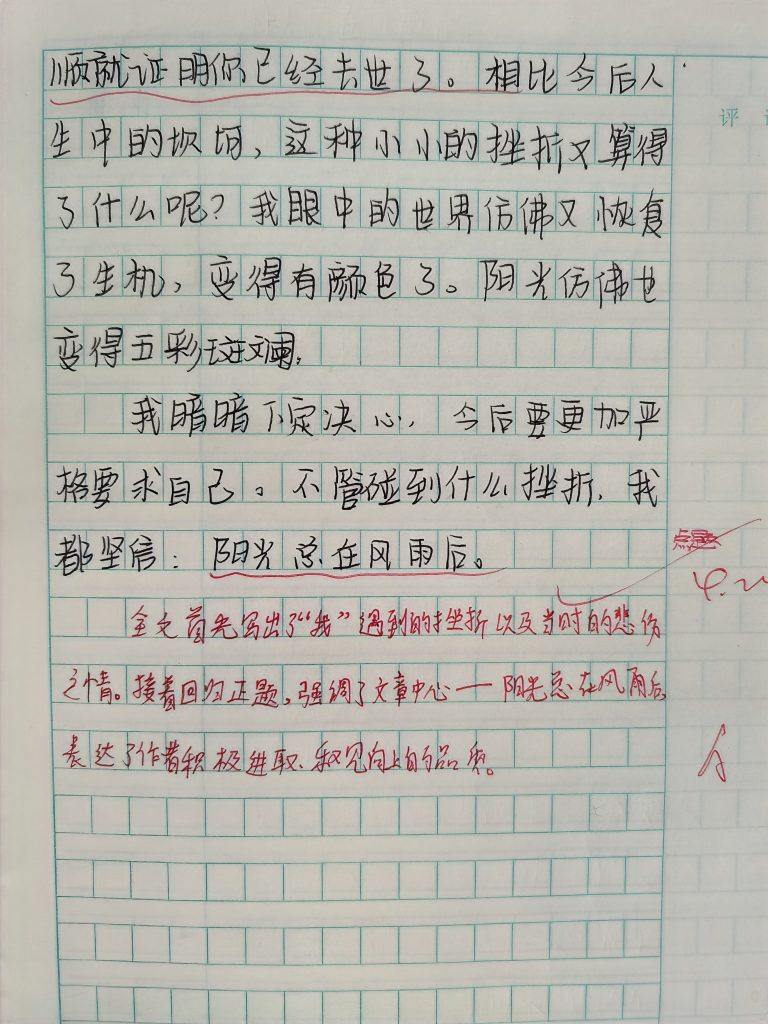 顺就证明你已经去世了。相比今后人
生中的坎坷，这种小小的挫折又算得
了什么呢？我眼中的世界仿佛又恢复
了生机，变得有颜色了。阳光仿佛也
变得五彩斑斓。
我暗暗下定决心，今后要更加严
格要求自己。不管碰到什么挫折，我
都坚信：阳光总在风雨后。
全文首先写出了“我”遇到的挫折以及当时的悲伤
之情。接着回归正题，强调了文章中心——阳光总在风雨后，
表达了作者积极进取、积见向上的品质。
评
点题
4.21